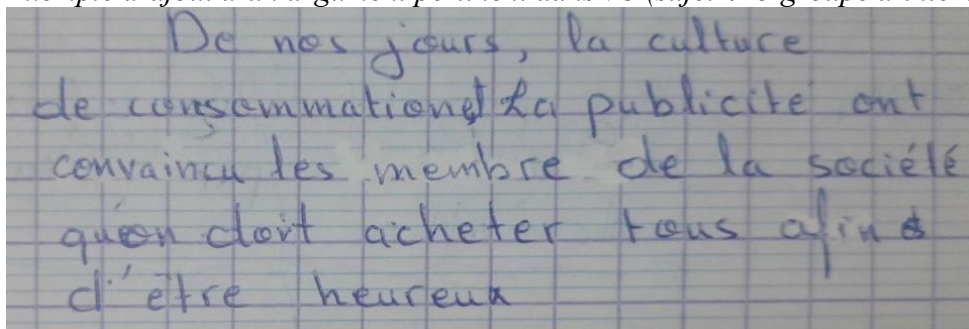 De nos jours, la culture
de consommation et la publicité ont
convaincu les membre de la société
qu'on doit acheter tous afin
d'être heureux